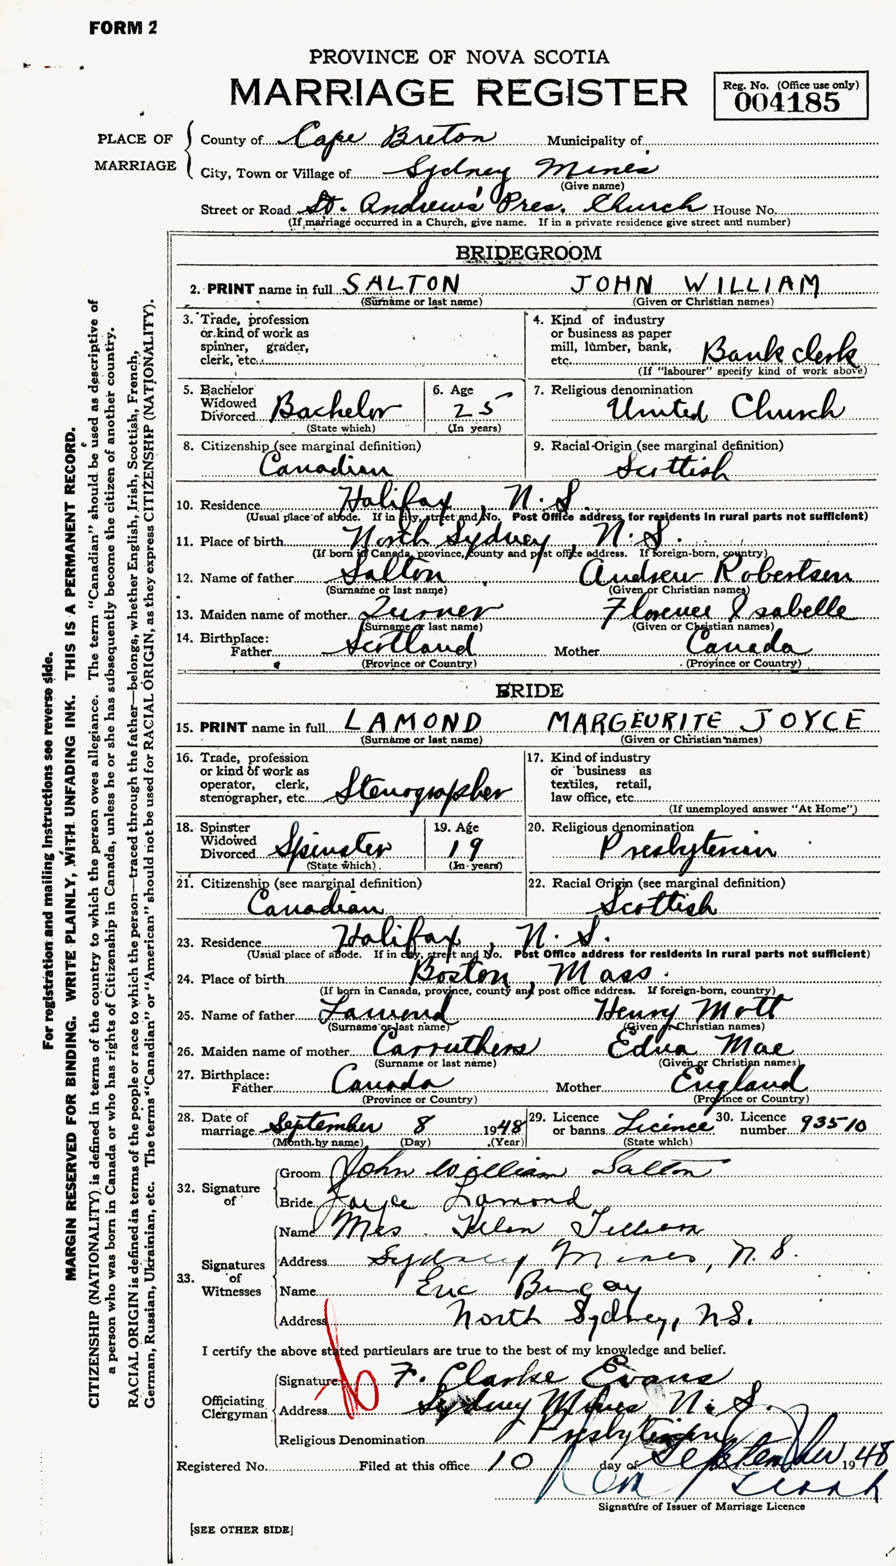 FORM 2
PROVINCE OF NOVA SCOTIA
MARRIAGE REGISTER
Reg. No. (Office use only)
004185
PLACE OF MARRIAGE
County of Cape Breton Municipality of
City, Town or Village of Sydney Mines
(Give name)
Street or Road St. Andrews' Pres. Church House No.
(If marriage occurred in a Church, give name. If in a private residence give street and number)
BRIDEGROOM
2. PRINT name in full SALTON JOHN WILLIAM
(Surname or last name) (Given or Christian names)
3. Trade, profession or kind of work as spinner, grader, clerk, etc.
4. Kind of industry or business as paper mill, lumber, bank, etc. Bank clerk
(If "labourer" specify kind of work above)
5. Bachelor Widowed Divorced Bachelor
(State which)
6. Age 25
(In years)
7. Religious denomination
United Church
8. Citizenship (see marginal definition)
Canadian
9. Racial Origin (see marginal definition)
Scottish
10. Residence Halifax, N.S.
(Usual place of abode. If in city, street and No. Post Office address for residents in rural parts not sufficient)
11. Place of birth North Sydney, N.S.
(If born in Canada, province, county and post office address. If foreign-born, country)
12. Name of father Salton Andrew Robertson
(Surname or last name) (Given or Christian names)
13. Maiden name of mother Turner Florence Isabelle
(Surname or last name) (Given or Christian names)
14. Birthplace:
Father Scotland Mother Canada
(Province or Country) (Province or Country)
BRIDE
15. PRINT name in full LAMOND MARGEURITE JOYCE
(Surname or last name) (Given or Christian names)
16. Trade, profession or kind of work as operator, clerk, stenographer, etc. Stenographer
17. Kind of industry or business as textiles, retail, law office, etc.
(If unemployed answer "At Home")
18. Spinster Widowed Divorced Spinster
(State which)
19. Age 19
(In years)
20. Religious denomination
Presbyterian
21. Citizenship (see marginal definition)
Canadian
22. Racial Origin (see marginal definition)
Scottish
23. Residence Halifax, N.S.
(Usual place of abode. If in city, street and No. Post Office address for residents in rural parts not sufficient)
24. Place of birth Boston, Mass.
(If born in Canada, province, county and post office address. If foreign-born, country)
25. Name of father Lamond Henry Mott
(Surname or last name) (Given or Christian names)
26. Maiden name of mother Carruthers Edna Mae
(Surname or last name) (Given or Christian names)
27. Birthplace:
Father Canada Mother England
(Province or Country) (Province or Country)
28. Date of marriage September 8 1948
(Month by name) (Day) (Year)
29. Licence or banns Licence
(State which)
30. Licence number 93510
32. Signature of
Groom John William Salton
Bride Joyce Lamond
33. Signatures of Witnesses
Name Mrs. Helen
Address Sydney Mines, N.S.
Name Eric
Address North Sydney, N.S.
I certify the above stated particulars are true to the best of my knowledge and belief.
Officiating Clergyman
Signature F. Clarke Evans
Address Sydney Mines N.S.
Religious Denomination Presbyterian
Registered No. Filed at this office 10 day of September 1948
Signature of Issuer of Marriage Licence
[SEE OTHER SIDE]
For registration and mailing instructions see reverse side.
MARGIN RESERVED FOR BINDING. WRITE PLAINLY, WITH UNFADING INK. THIS IS A PERMANENT RECORD.
CITIZENSHIP (NATIONALITY) is defined in terms of the country to which the person owes allegiance. The term "Canadian" should be used as descriptive of
a person who was born in Canada or who has rights of Citizenship in Canada, unless he or she has subsequently become the citizen of another country.
RACIAL ORIGIN is defined in terms of the people or race to which the person—traced through the father—belongs, whether English, Irish, Scottish, French,
German, Russian, Ukrainian, etc. The terms "Canadian" or "American" should not be used for RACIAL ORIGIN, as they express CITIZENSHIP (NATIONALITY).